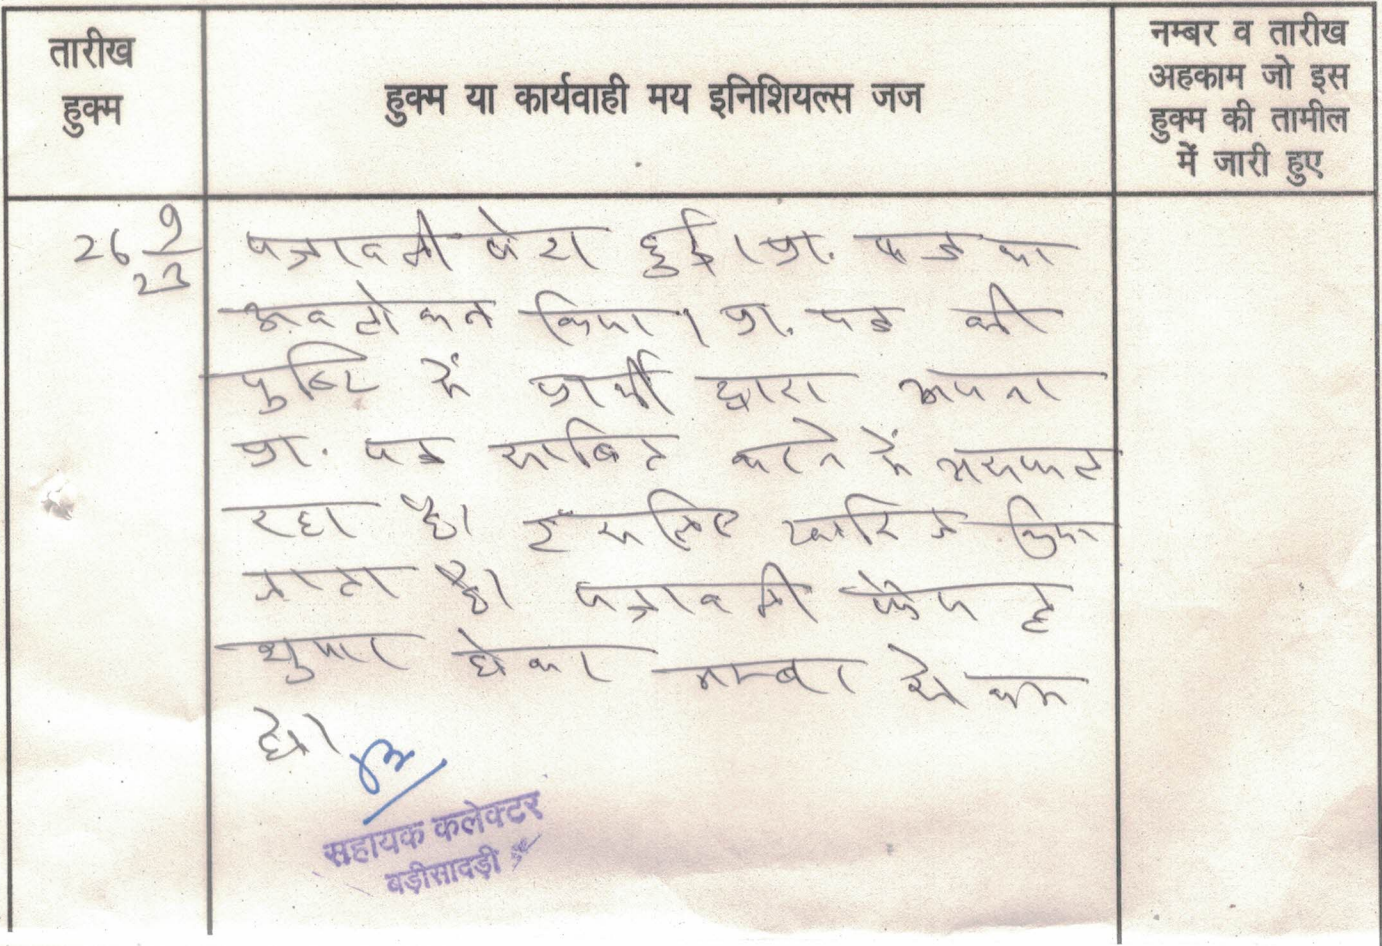 तारीख
हुक्म
हुक्म या कार्यवाही मय इनिशियल्स जज
नम्बर व तारीख
अहकाम जो इस
हुक्म की तामील
में जारी हुए
26 9/23
पत्रावली पेश हुई। प्रा. पत्र का
अवलोकन किया। प्रा. पत्र की
पुष्टि में प्रार्थी द्वारा अपना
प्रा. पत्र साबित करने में असफल
रहा है। इसलिए खारिज किया
जाता है। पत्रावली फैसल
शुमार होकर नम्बर से कम
हो।
सहायक कलेक्टर
बड़ीसादड़ी